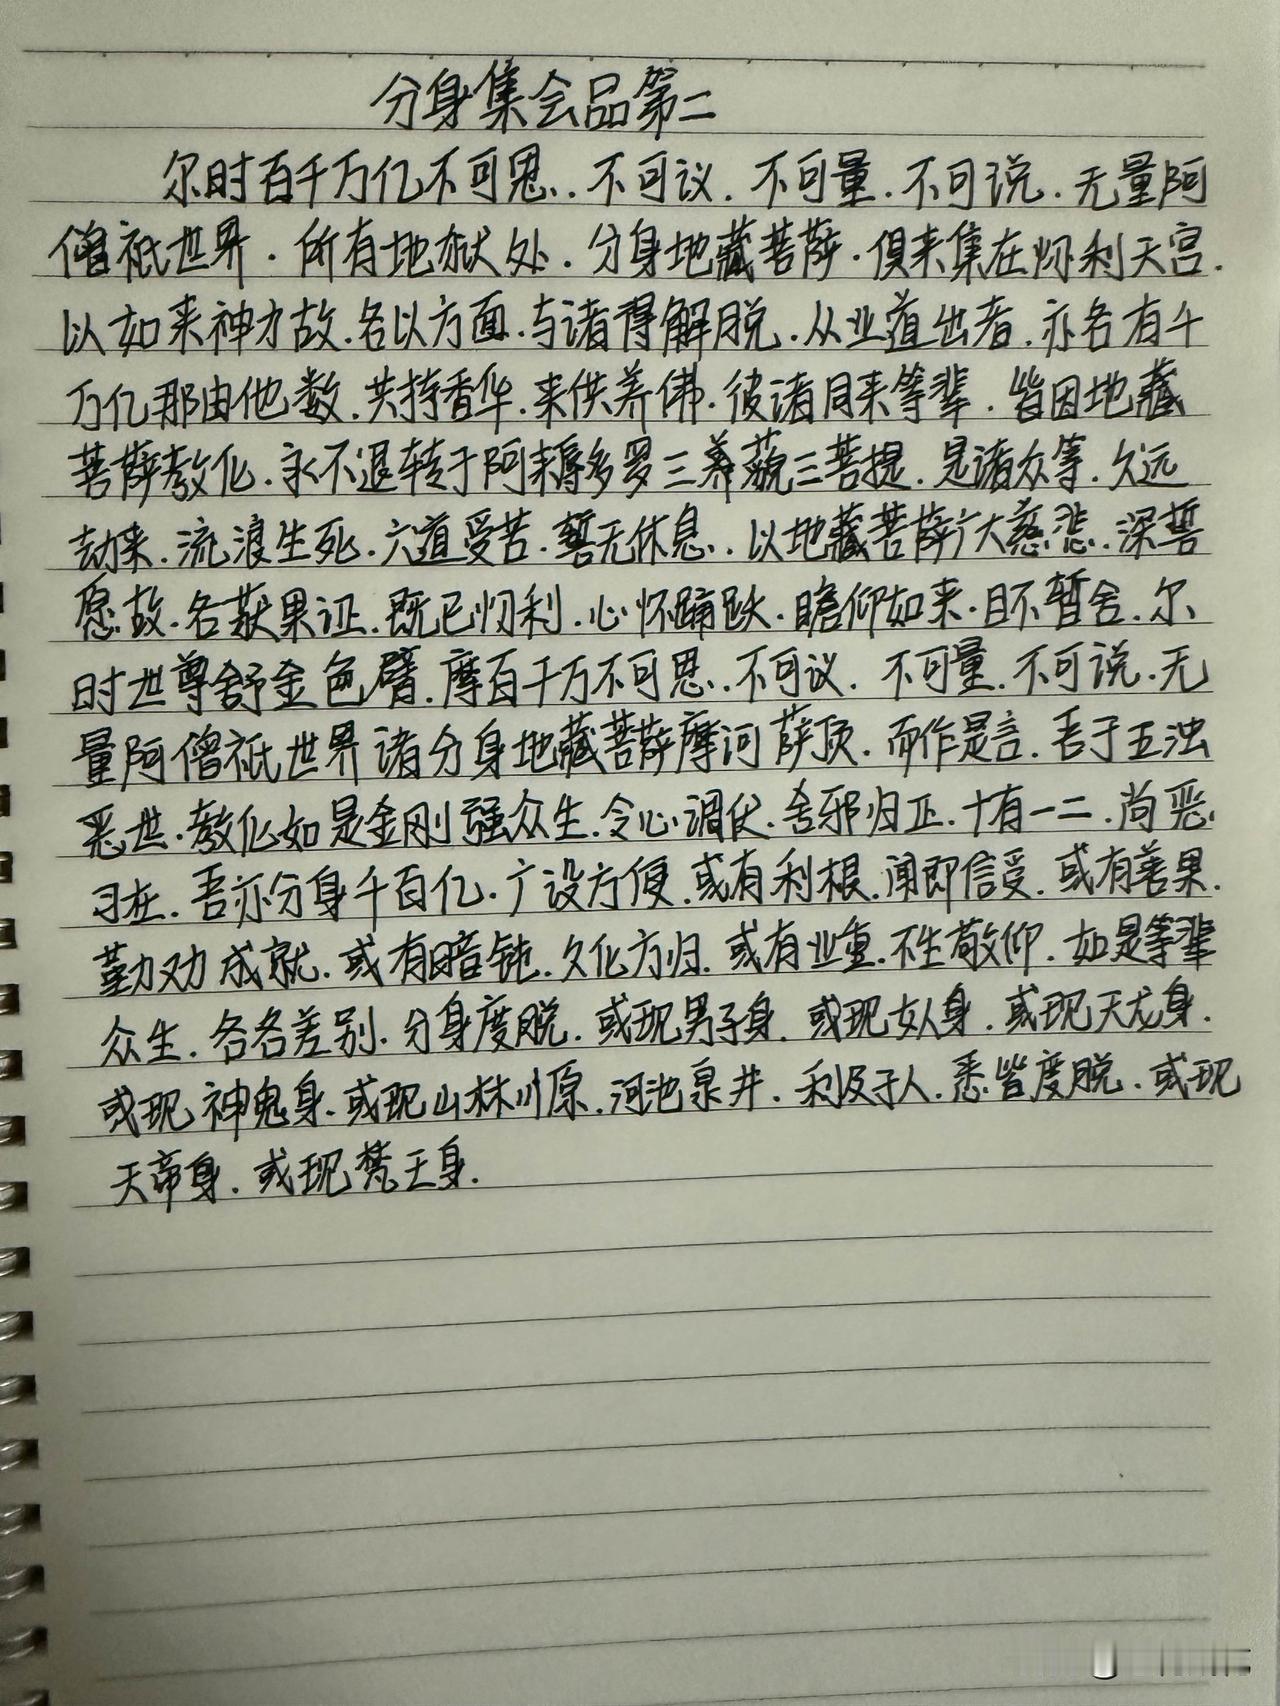 分身集会品第二
尔时百千万亿不可思.不可议.不可量.不可说.无量阿
僧祇世界.所有地狱处.分身地藏菩萨.俱来集在忉利天宫.
以如来神力故.各以方面.与诸得解脱.从业道出者.亦各有千
万亿那由他数.共持香华.来供养佛.彼诸同来等辈.皆因地藏
菩萨教化.永不退转于阿耨多罗三藐三菩提.是诸众等.久远
劫来.流浪生死.六道受苦.暂无休息.以地藏菩萨广大慈悲.深誓
愿故.各获果证.既已忉利.心怀踊跃.瞻仰如来.目不暂舍.尔
时世尊舒金色臂.摩百千万不可思.不可议.不可量.不可说.无
量阿僧祇世界诸分身地藏菩萨摩诃萨顶.而作是言.吾于五浊
恶世.教化如是金刚强众生.令心调伏.舍邪归正.十有一二.尚恶
习在.吾亦分身千百亿.广设方便.或有利根.闻即信受.或有善果.
勤劝成就.或有暗钝.久化方归.或有业重.不生敬仰.如是等辈
众生.各各差别.分身度脱.或现男子身.或现女人身.或现天龙身.
或现神鬼身.或现山林川原.河池泉井.利及于人.悉皆度脱.或现
天帝身.或现梵王身.